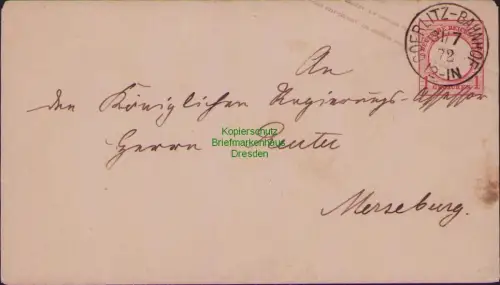 GOERLITZ-BAHNHOF
31/7
72
12-1N
An
den Königlichen Regierungs-Assessor
Herrn Reuter
Merseburg.
Kopierschutz
Briefmarkenhaus
Dresden